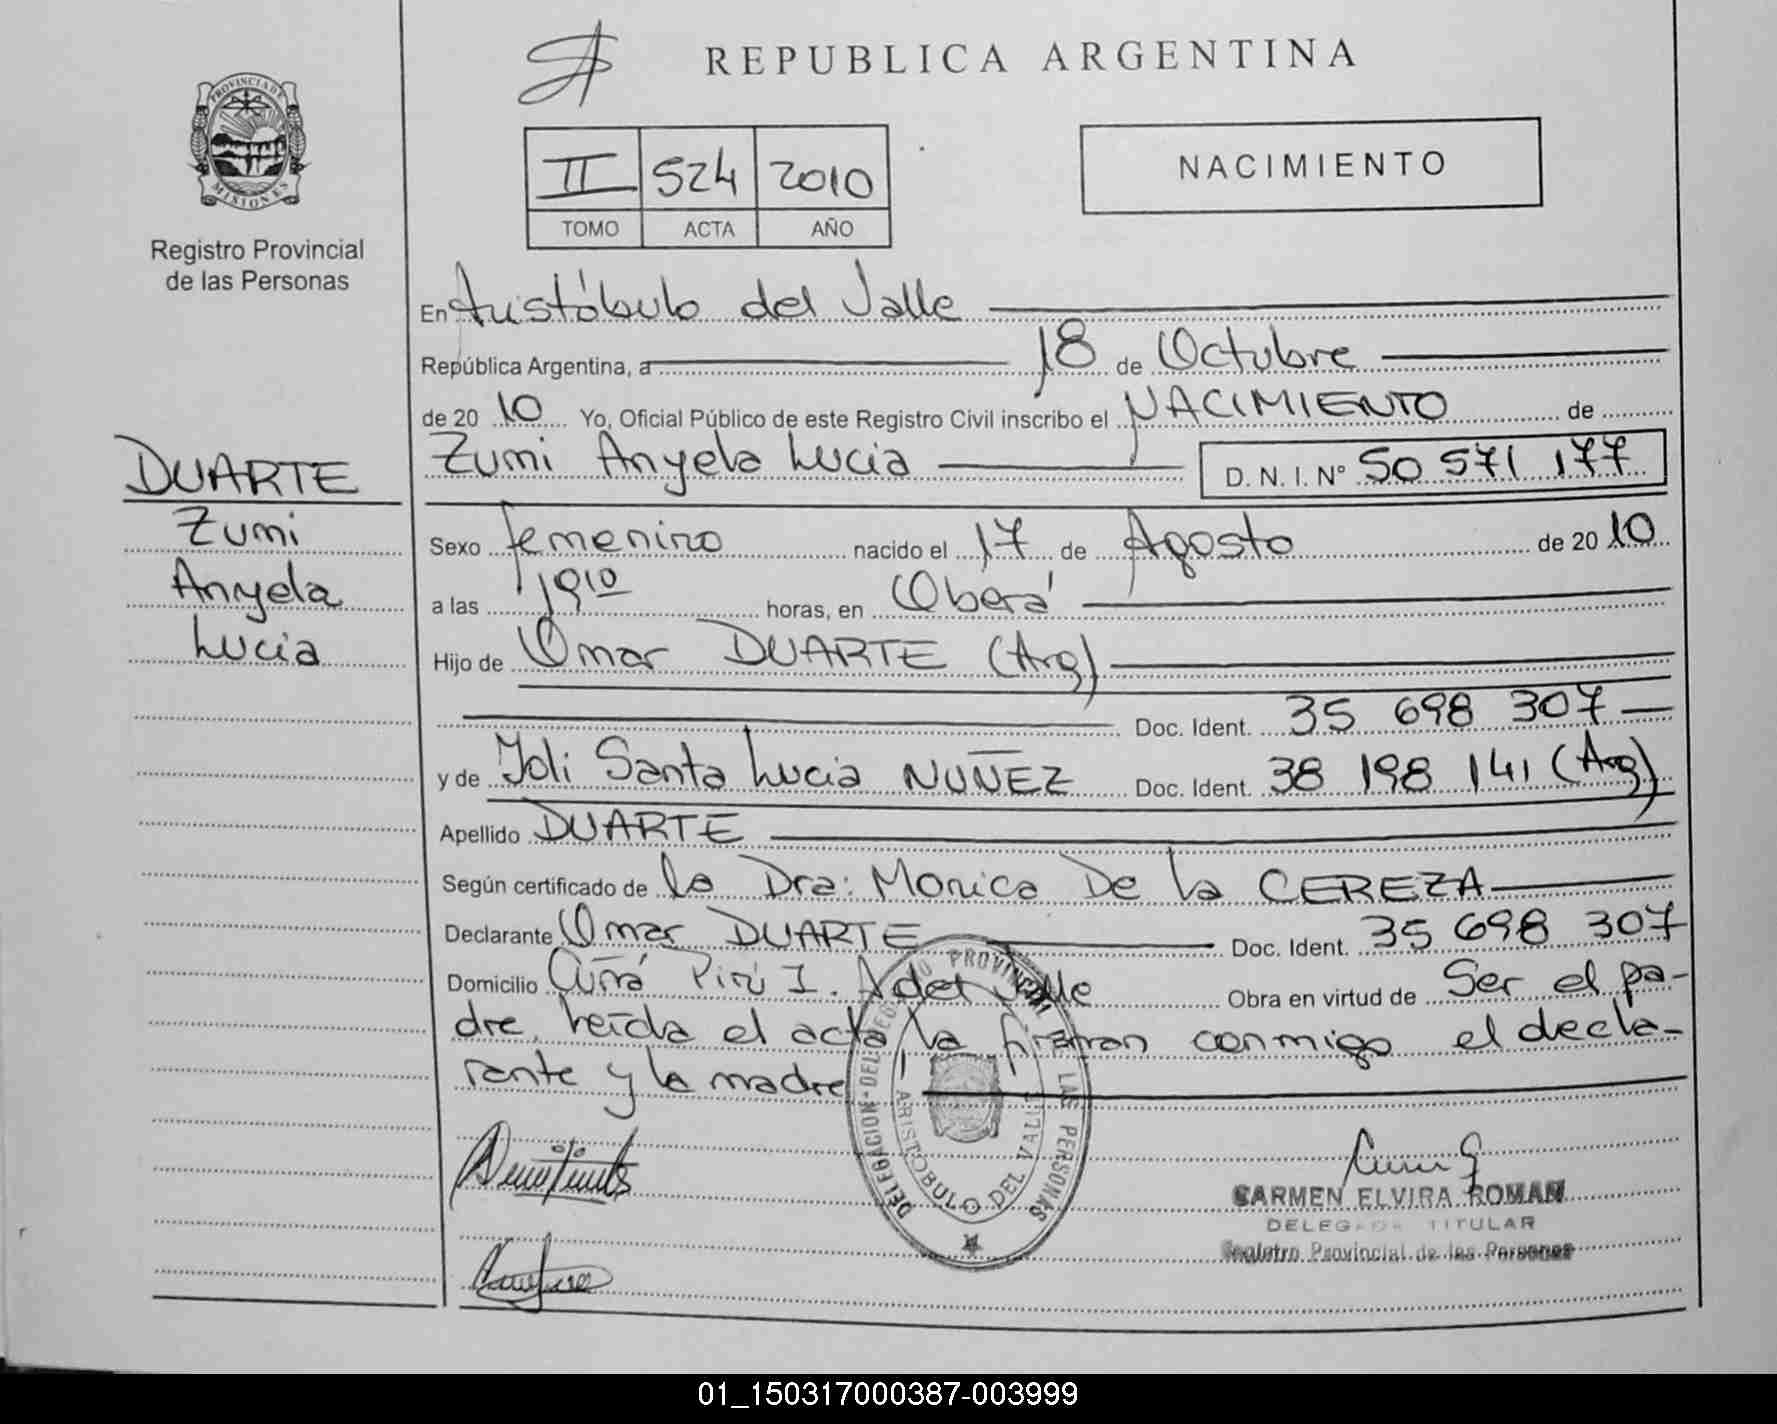 REPUBLICA ARGENTINA
PROVINCIA DE MISIONES
Registro Provincial
de las Personas
II 524 2010
TOMO ACTA AÑO
NACIMIENTO
En Aristóbulo del Valle
República Argentina, a 18 de Octubre
de 20 10 Yo, Oficial Público de este Registro Civil inscribo el NACIMIENTO de
Zumi Anyela Lucia D. N. I. Nº 50 571 177
DUARTE
Zumi
Anyela
Lucia
Sexo femenino nacido el 17 de Agosto de 20 10
a las 19 10 horas, en Oberá
Hijo de Omar DUARTE (Arg)
Doc. Ident. 35 698 307
y de Yoli Santa Lucia NUÑEZ Doc. Ident. 38 198 141 (Arg)
Apellido DUARTE
Según certificado de la Dra: Monica De la CEREZA
Declarante Omar DUARTE Doc. Ident. 35 698 307
Domicilio Cuñá Pirú I. A del Valle Obra en virtud de Ser el pa-
dre, leída el acta la firman conmigo el decla-
rante y la madre
DELEGACION DEL REGISTRO PROVINCIAL DE LAS PERSONAS
ARISTOBULO DEL VALLE
CARMEN ELVIRA ROMAN
DELEGADA TITULAR
Registro Provincial de las Personas
01_150317000387-003999